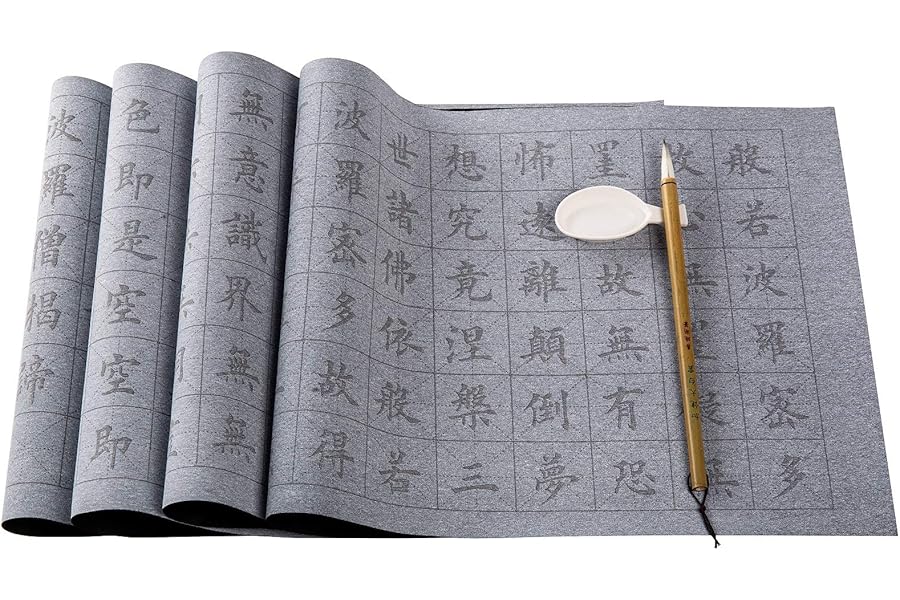 般若波羅密多
故心無罣礙無
罣故無有恐
怖遠離顛倒夢
想究竟涅槃三
世諸佛依般若
波羅密多故得
無意識界無無
色即是空空即
波羅僧揭諦